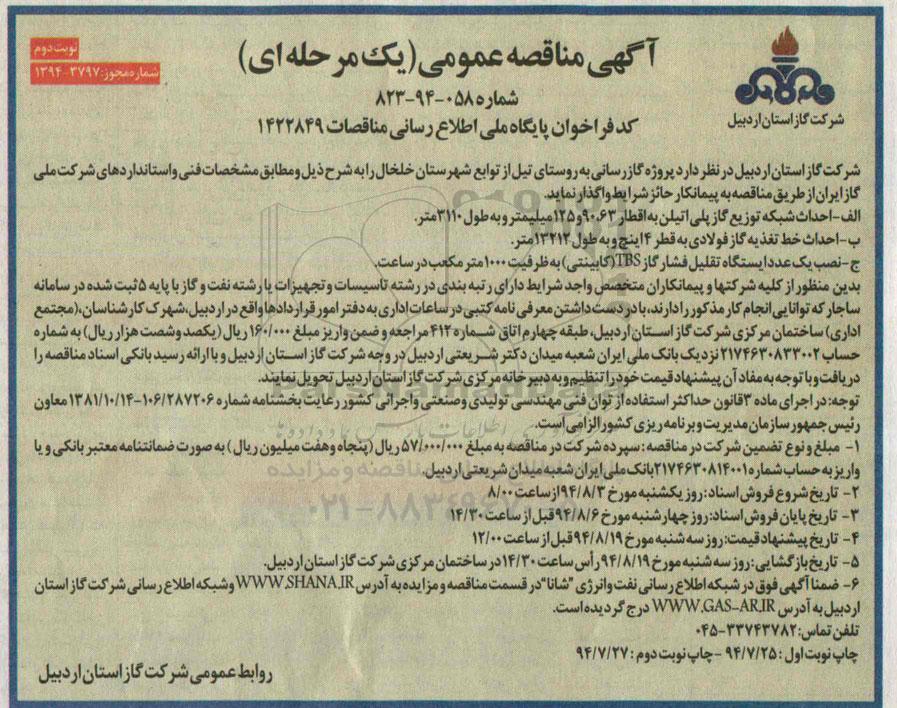 آگهی مناقصه عمومی (یک مرحله ای)
نوبت دوم
شماره مجوز: ۳۷۹۷-۱۳۹۴
شماره ۰۵۸-۹۴-۸۲۳
کد فراخوان پایگاه ملی اطلاع رسانی مناقصات ۱۴۲۲۸۴۹
شرکت گاز استان اردبیل
شرکت گاز استان اردبیل در نظر دارد پروژه گازرسانی به روستای تیل از توابع شهرستان خلخال را به شرح ذیل و مطابق مشخصات فنی و استانداردهای شرکت ملی
گاز ایران از طریق مناقصه به پیمانکار حائز شرایط واگذار نماید.
الف- احداث شبکه توزیع گاز پلی اتیلن به اقطار ۹۰،۶۳ و ۱۲۵ میلیمتر و به طول ۳۱۱۰ متر.
ب- احداث خط تغذیه گاز فولادی به قطر ۴ اینچ و به طول ۱۳۲۱۲ متر.
ج- نصب یک عدد ایستگاه تقلیل فشار گاز TBS (کابینتی) به ظرفیت ۱۰۰۰ متر مکعب در ساعت.
بدین منظور از کلیه شرکتها و پیمانکاران متخصص واجد شرایط دارای رتبه بندی در رشته تاسیسات و تجهیزات یا رشته نفت و گاز با پایه ۵ ثبت شده در سامانه
ساجار که توانایی انجام کار مذکور را دارند، با در دست داشتن معرفی نامه کتبی در ساعات اداری به دفتر امور قراردادها واقع در اردبیل، شهرک کارشناسان، (مجتمع
اداری) ساختمان مرکزی شرکت گاز استان اردبیل، طبقه چهارم اتاق شماره ۴۱۲ مراجعه و ضمن واریز مبلغ ۱۶۰/۰۰۰ ریال (یکصد و شصت هزار ریال) به شماره
حساب ۲۱۷۴۶۳۰۸۳۳۰۰۲ نزد یک بانک ملی ایران شعبه میدان دکتر شریعتی اردبیل در وجه شرکت گاز استان اردبیل و با ارائه رسید بانکی اسناد مناقصه را
دریافت و با توجه به مفاد آن پیشنهاد قیمت خود را تنظیم و به دبیرخانه مرکزی شرکت گاز استان اردبیل تحویل نمایند.
توجه: در اجرای ماده ۳ قانون حداکثر استفاده از توان فنی مهندسی تولیدی و صنعتی و اجرائی کشور رعایت بخشنامه شماره ۱۰۶/۲۸۷۲۰۶-۱۳۸۱/۱۰/۱۴ معاون
رئیس جمهور سازمان مدیریت و برنامه ریزی کشور الزامی است.
۱- مبلغ و نوع تضمین شرکت در مناقصه: سپرده شرکت در مناقصه به مبلغ ۵۷/۰۰۰/۰۰۰ ریال (پنجاه و هفت میلیون ریال) به صورت ضمانتنامه معتبر بانکی و یا
واریز به حساب شماره ۲۱۷۴۶۳۰۸۱۴۰۰۱ بانک ملی ایران شعبه میدان شریعتی اردبیل.
۲- تاریخ شروع فروش اسناد: روز یکشنبه مورخ ۹۴/۸/۳ از ساعت ۸/۰۰
۳- تاریخ پایان فروش اسناد: روز چهارشنبه مورخ ۹۴/۸/۶ قبل از ساعت ۱۴/۳۰
۴- تاریخ پیشنهاد قیمت: روز سه شنبه مورخ ۹۴/۸/۱۹ قبل از ساعت ۱۲/۰۰
۵- تاریخ بازگشایی: روز سه شنبه مورخ ۹۴/۸/۱۹ رأس ساعت ۱۴/۳۰ در ساختمان مرکزی شرکت گاز استان اردبیل.
۶- ضمنا آگهی فوق در شبکه اطلاع رسانی نفت و انرژی "شانا" در قسمت مناقصه و مزایده به آدرس WWW.SHANA.IR و شبکه اطلاع رسانی شرکت گاز استان
اردبیل به آدرس WWW.GAS-AR.IR درج گردیده است.
تلفن تماس: ۳۳۷۴۳۷۸۲-۰۴۵
چاپ نوبت اول: ۹۴/۷/۲۵ - چاپ نوبت دوم: ۹۴/۷/۲۷
روابط عمومی شرکت گاز استان اردبیل